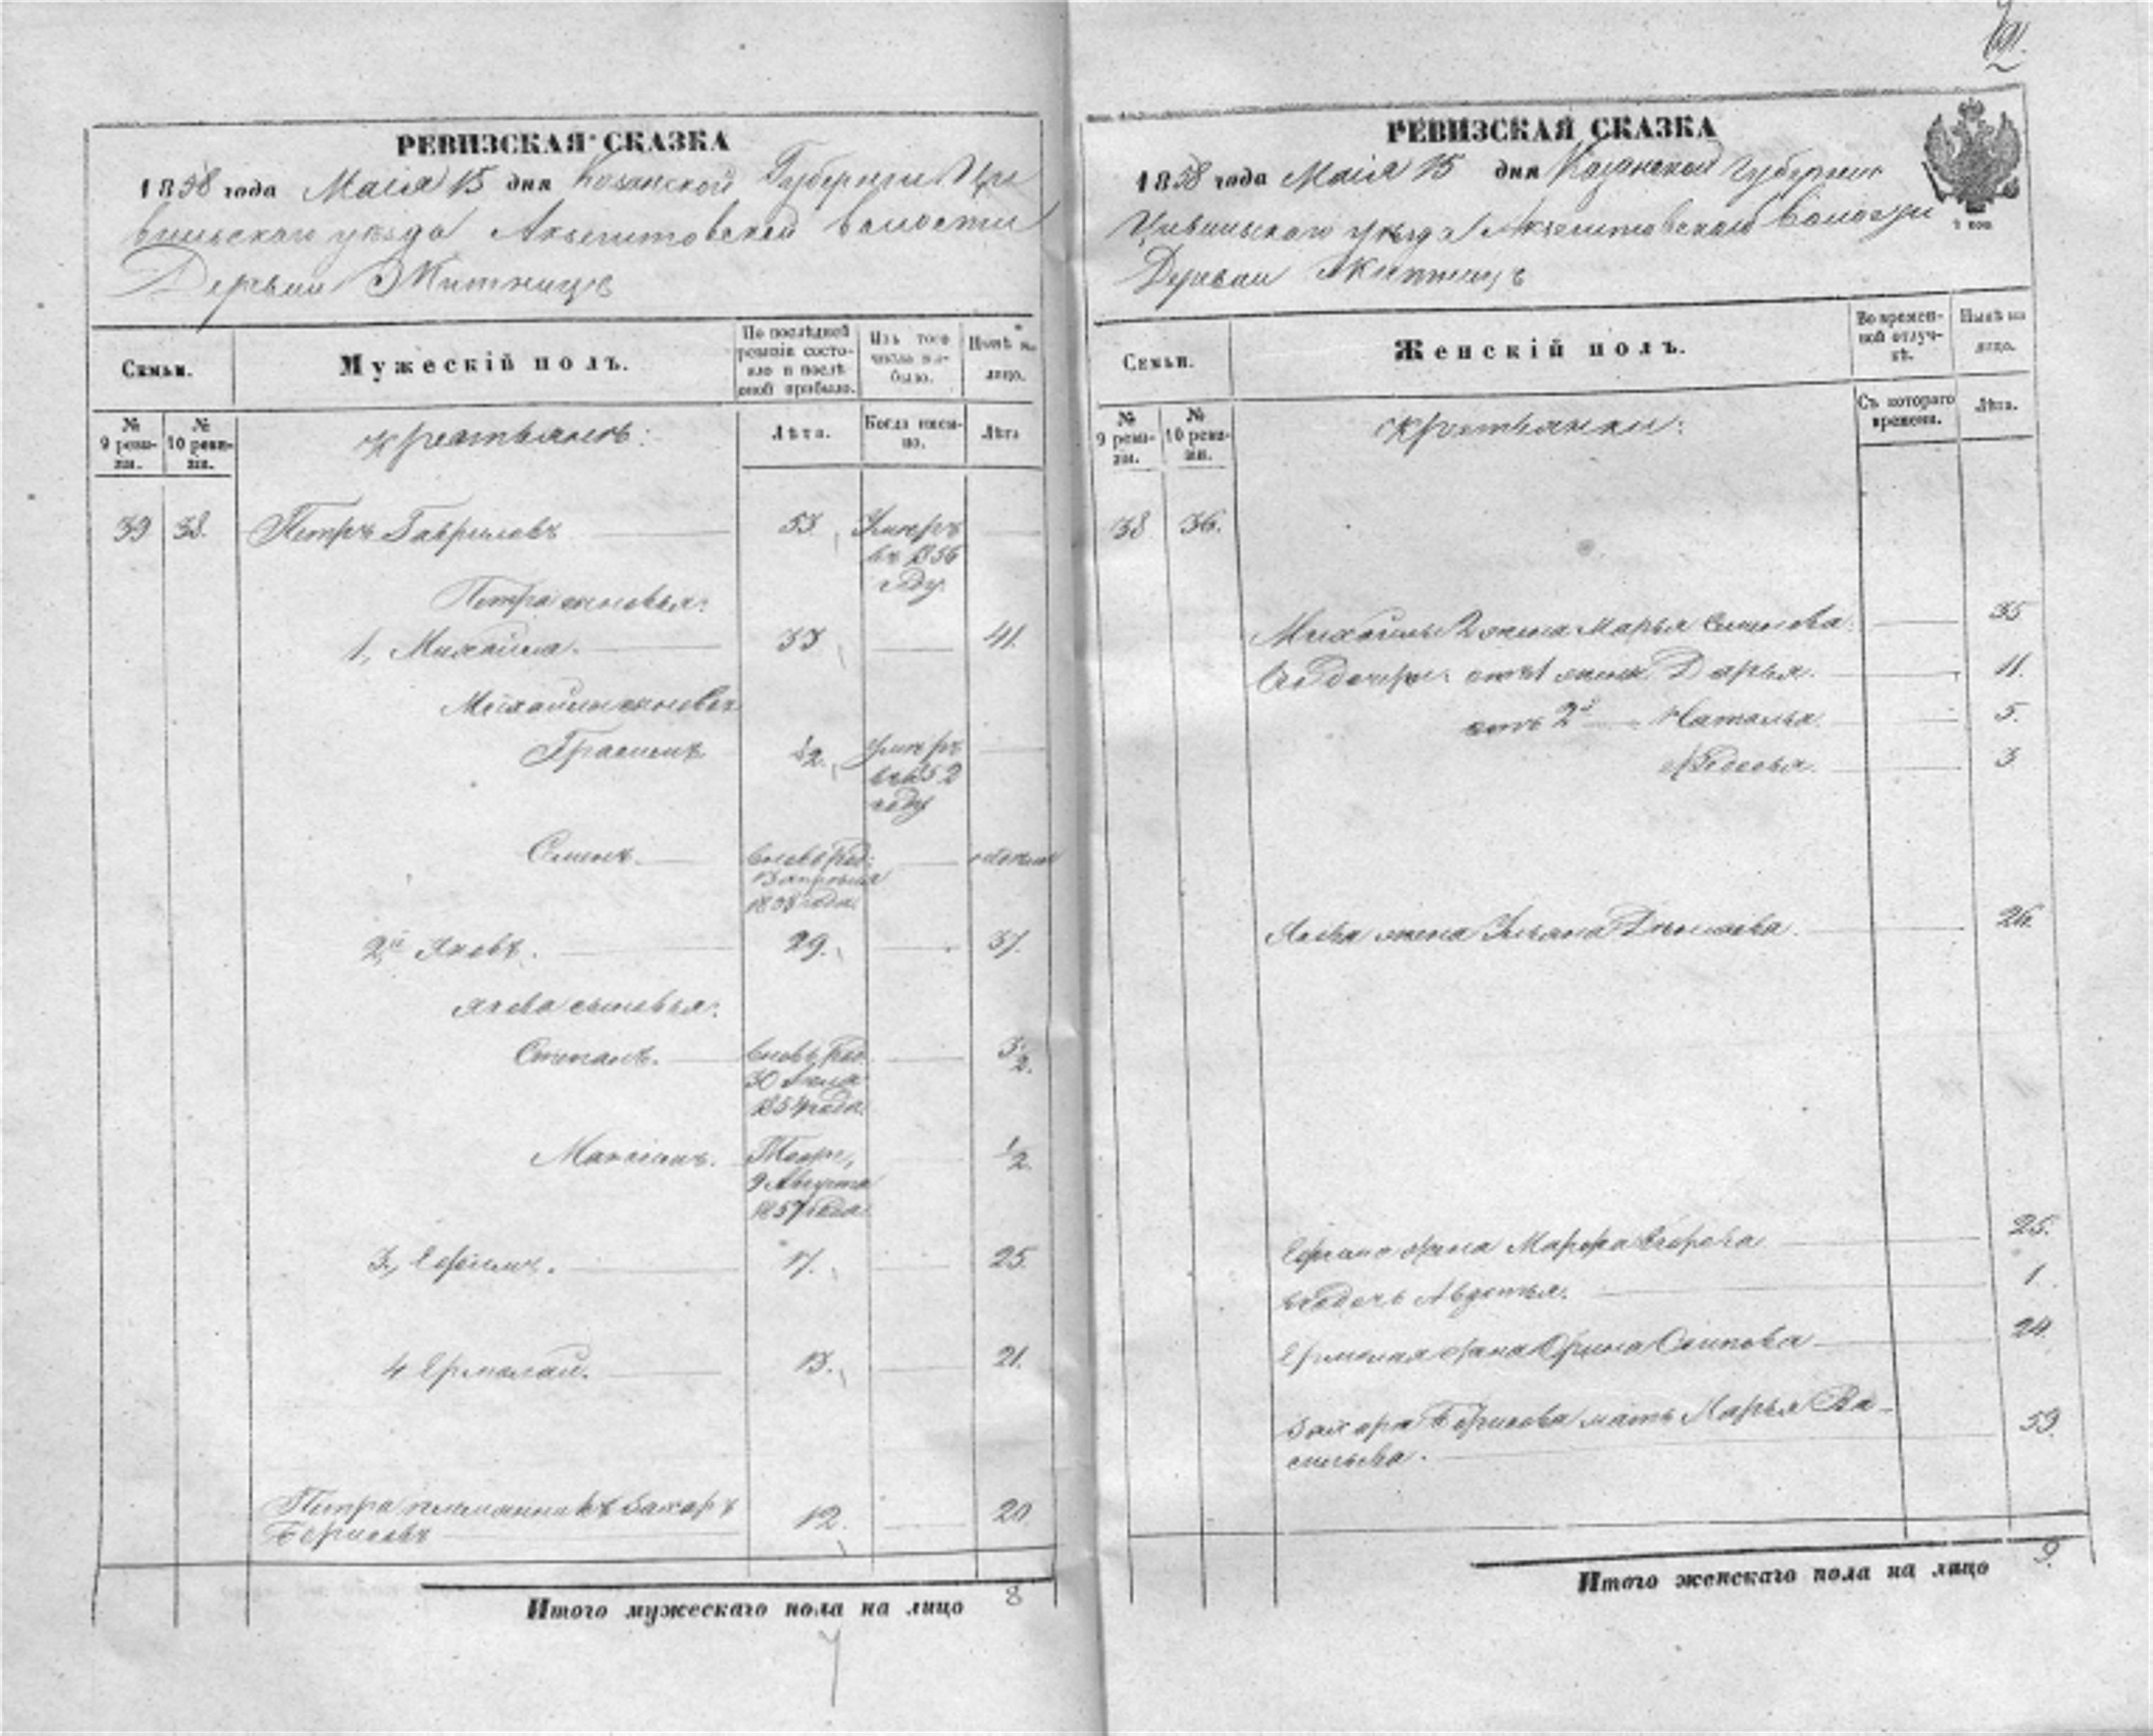 РЕВИЗСКАЯ СКАЗКА
1858 года Маия 15 дня Казанской Губернии Ци
вильскаго уезда Акзегитовской волости
Деревни Житницъ
Семьи.
Мужескій полъ.
По послѣдней ревизіи состояло и послѣ оной прибыло.
Изъ того числа выбыло.
Нынѣ на лицо.
№ 9 ревизіи.
№ 10 ревизіи.
крестьянъ:
Лѣта.
Когда именно.
Лѣта
39 38. Петръ Гавриловъ 53. Умеръ
въ 1856
году.
Петра сыновья:
1, Михайла. 33 41.
Михайлы сыновья
Грасимъ ½. умеръ
въ 1852
году
Семенъ. вновь род:
13 апреля
1858 года. недель
2й Яковъ. 29. 37.
Якова сыновья:
Степанъ. вновь род.
30
1854 года. 3½.
Максимъ. Тоже,
9 Августа
1857 года. ½.
3, Ефимъ. 17. 25.
4 Ермолай. 13. 21.
Петра племянникъ Захаръ
Борисовъ 12. 20
Итого мужескаго пола на лицо 8
РЕВИЗСКАЯ СКАЗКА
1858 года Маия 15 дня Казанской Губернии
Цивильскаго уезда Акзегитовской волости
Деревни Житницъ
Семьи.
Женскій полъ.
Во временной отлучкѣ.
Нынѣ на лицо.
№ 9 ревизіи.
№ 10 ревизіи.
крестьянки:
Съ котораго времени.
Лѣта.
38 36.
Михайлы 2 жена Марья Семенова. 35
Его дочери: отъ 1 жены Дарья. 11.
отъ 2й Наталья. 5.
Федосья. 3
Якова жена Ульяна Данилова. 26.
Ефима жена Марфа Егорова 25.
его дочь Авдотья. 1.
Ермолая жена Орина Осипова 24.
Захара Борисова мать Марья Ва-
сильева. 59.
Итого женскаго пола на лицо 9.